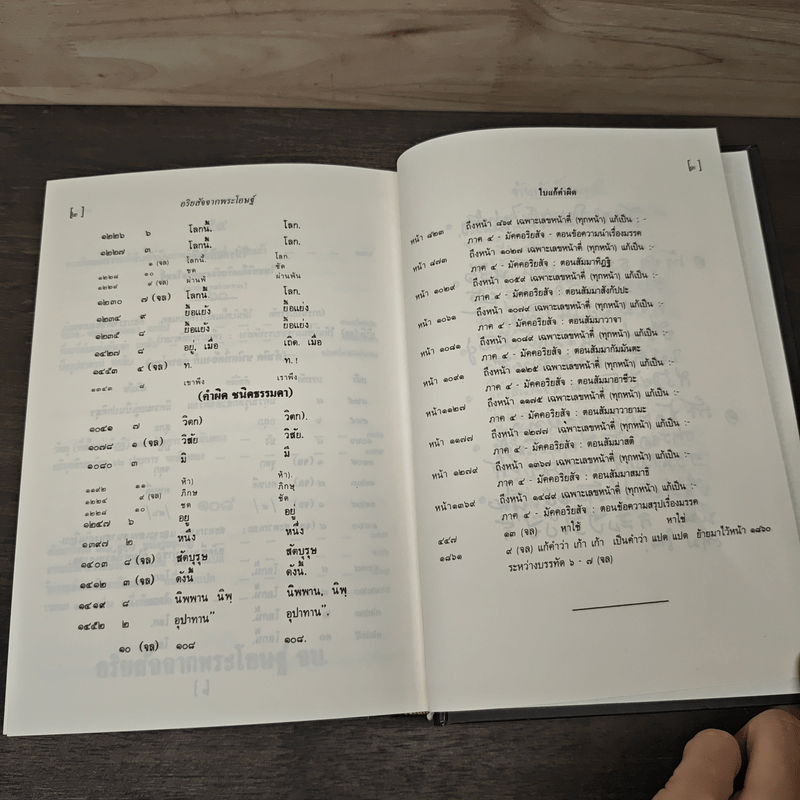 [๒]
อริยสัจจากพระโอษฐ์
๑๒๒๖ ๖ โลกนี้. โลก.
๑๒๒๗ ๓ โลกนี้. โลก.
๑ (จล) โลกนี้ โลก.
๑๒๒๘ ๑๐ ชด ชัด
๑๒๒๙ ๙ (จล) ผ่านฟ้ ผ่านพ้น
๑๒๓๐ ๗ (จล) โลกนี้. โลก.
๑๒๓๔ ๙ ย้อแย้ง ย้อแย่ง
๑๒๓๕ ๘ ย้อแย้ง ย้อแย่ง
๑๔๒๗ ๘ อยู่. เมื่อ เถิด. เมื่อ
๑๔๕๓ ๔ (จล) ท. ท. !
๑๓๔๓ ๘ เขาพึง เราพึง
(คำผิด ชนิดธรรมดา)
๑๐๔๑ ๗ วิตก) วิตก).
๑๐๗๘ ๑ (จล) วิสัย วิสัย.
๑๐๘๐ ๓ มิ มี
๑๑๙๒ ๑๑ ห้า) ห้า).
๑๒๒๔ ๙ (จล) ภิกษ ภิกษุ
๑๒๒๘ ๑๐ ชด ชัด
๑๒๔๗ ๖ อยู อยู่
๑๓๙๗ ๒ หนึ่ง หนึ่ง
๑๔๐๓ ๘ (จล) สัตบุรุษ สัตบุรุษ
๑๔๑๒ ๓ (จล) ดังนี้ ดังนี้.
๑๔๑๙ ๘ นิพพาน นิพฺ นิพพาน, นิพฺ
๑๕๕๒ ๒ อุปาทาน” อุปาทาน”.
๑๐ (จล) ๑๐๘ ๑๐๘.
ใบแก้คำผิด
[๓]
หน้า ๘๒๓ ถึงหน้า ๘๖๙ เฉพาะเลขหน้าคี่ (ทุกหน้า) แก้เป็น : -
ภาค ๔ - มัคคอริยสัจ - ตอนข้อความนำเรื่องมรรค
หน้า ๘๗๓ ถึงหน้า ๑๐๒๗ เฉพาะเลขหน้าคี่ (ทุกหน้า) แก้เป็น :-
ภาค ๔ - มัคคอริยสัจ : ตอนสัมมาทิฏฐิ
หน้า ๑๐๒๙ ถึงหน้า ๑๐๕๙ เฉพาะเลขหน้าคี่ (ทุกหน้า) แก้เป็น :-
ภาค ๔ - มัคคอริยสัจ : ตอนสัมมาสังกัปปะ
หน้า ๑๐๖๑ ถึงหน้า ๑๐๗๙ เฉพาะเลขหน้าคี่ (ทุกหน้า) แก้เป็น :-
ภาค ๔ - มัคคอริยสัจ : ตอนสัมมาวาจา
หน้า ๑๐๘๑ ถึงหน้า ๑๐๘๙ เฉพาะเลขหน้าคี่ (ทุกหน้า) แก้เป็น :-
ภาค ๔ - มัคคอริยสัจ : ตอนสัมมากัมมันตะ
หน้า ๑๐๙๑ ถึงหน้า ๑๑๒๕ เฉพาะเลขหน้าคี่ (ทุกหน้า) แก้เป็น :-
ภาค ๔ - มัคคอริยสัจ : ตอนสัมมาอาชีวะ
หน้า๑๑๒๗ ถึงหน้า ๑๑๗๕ เฉพาะเลขหน้าคี่ (ทุกหน้า) แก้เป็น :-
ภาค ๔ - มัคคอริยสัจ : ตอนสัมมาวายามะ
หน้า ๑๑๗๗ ถึงหน้า ๑๒๗๗ เฉพาะเลขหน้าคี่ (ทุกหน้า) แก้เป็น :-
ภาค ๔ - มัคคอริยสัจ : ตอนสัมมาสติ
หน้า ๑๒๗๙ ถึงหน้า ๑๓๖๗ เฉพาะเลขหน้าคี่ (ทุกหน้า) แก้เป็น :-
ภาค ๔ - มัคคอริยสัจ : ตอนสัมมาสมาธิ
หน้า๑๓๖๙ ถึงหน้า ๑๔๘๙ เฉพาะเลขหน้าคี่ (ทุกหน้า) แก้เป็น :-
ภาค ๔ - มัคคอริยสัจ : ตอนข้อความสรุปเรื่องมรรค
๔๔๗ ๑๓ (จล) หาใช้ หาใช่
๑๘๖๑ ๙ (จล) แก้คำว่า เก้า เก้า เป็นคำว่า แปด แปด ย้ายมาไว้หน้า ๑๘๖๐
ระหว่างบรรทัด ๖ - ๗ (จล)